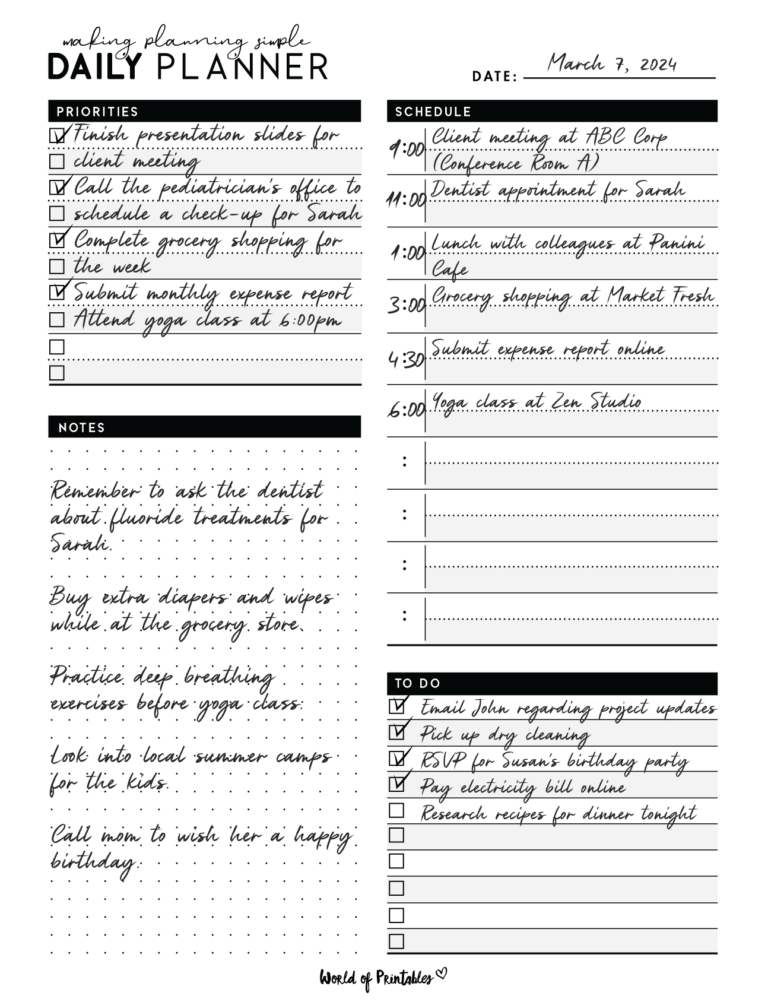 making planning simple
DAILY PLANNER
DATE: March 7, 2024
PRIORITIES
Finish presentation slides for
client meeting
Call the pediatrician's office to
schedule a check-up for Sarah
Complete grocery shopping for
the week
Submit monthly expense report
Attend yoga class at 6:00pm
NOTES
Remember to ask the dentist
about fluoride treatments for
Sarah.
Buy extra diapers and wipes
while at the grocery store.
Practice deep breathing
exercises before yoga class.
Look into local summer camps
for the kids.
Call mom to wish her a happy
birthday.
SCHEDULE
9:00 Client meeting at ABC Corp
(Conference Room A)
11:00 Dentist appointment for Sarah
1:00 Lunch with colleagues at Panini
Cafe
3:00 Grocery shopping at Market Fresh
4:30 Submit expense report online
6:00 Yoga class at Zen Studio
:
:
:
:
TO DO
Email John regarding project updates
Pick up dry cleaning
RSVP for Susan's birthday party
Pay electricity bill online
Research recipes for dinner tonight
World of Printables